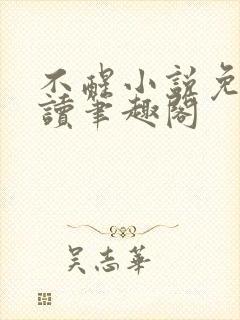 不醒小說免
讀筆趣閣
吳志華